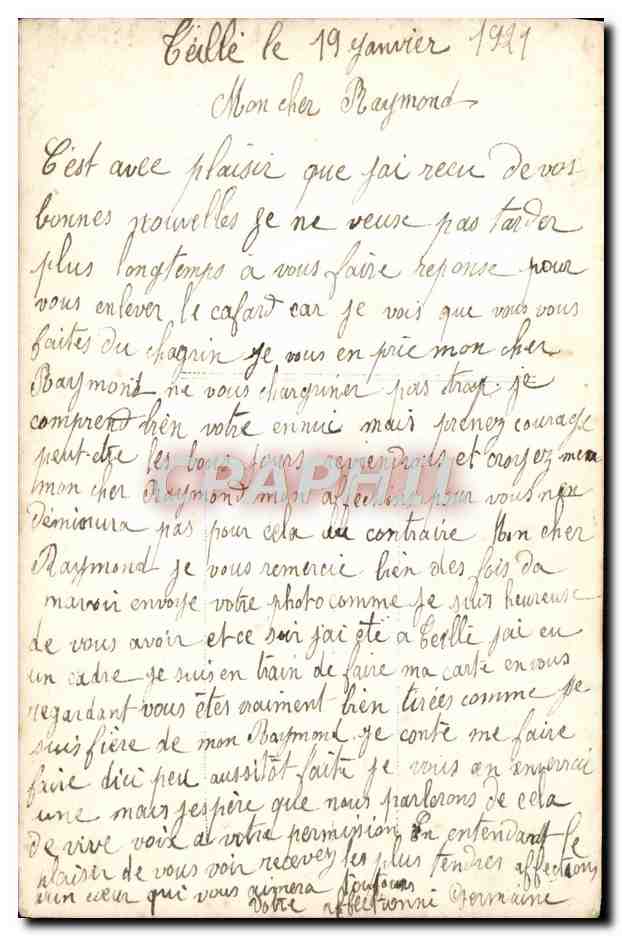 Teillé le 19 janvier 1921
Mon cher Raymond
C'est avec plaisir que jai recu de vos
bonnes nouvelles je ne veuse pas tarder
plus longtemps à vous faire reponse pour
vous enlever le cafard car je vois que vous vous
faites du chagrin je vous en prie mon cher
Raymond ne vous chagriner pas trop je
comprend bien votre ennui mais prenez courage
peut-etre les bons jours reviendrons et croyez
mon cher Raymond mon affection pour vous
déminura pas pour cela au contraire Mon cher
Raymond je vous remercie bien des fois da
mavoir envoye votre photo comme je suis heureuse
de vous avoir et ce soir jai été a Teillé jai eu
un cadre je suis en train de faire ma carte en vous
regardant vous êtes vraiment bien tirées comme je
suis fière de mon Raymond je conte me faire
faire dici peu aussitôt faite je vous en enverrai
une mais jespère que nous parlerons de cela
de vive voix a votre permission En entendant le
plaisir de vous voir recevez les plus tendres affections
dun cœur qui vous aimera toujours
votre affectionné Germaine
CPAPHIL.com